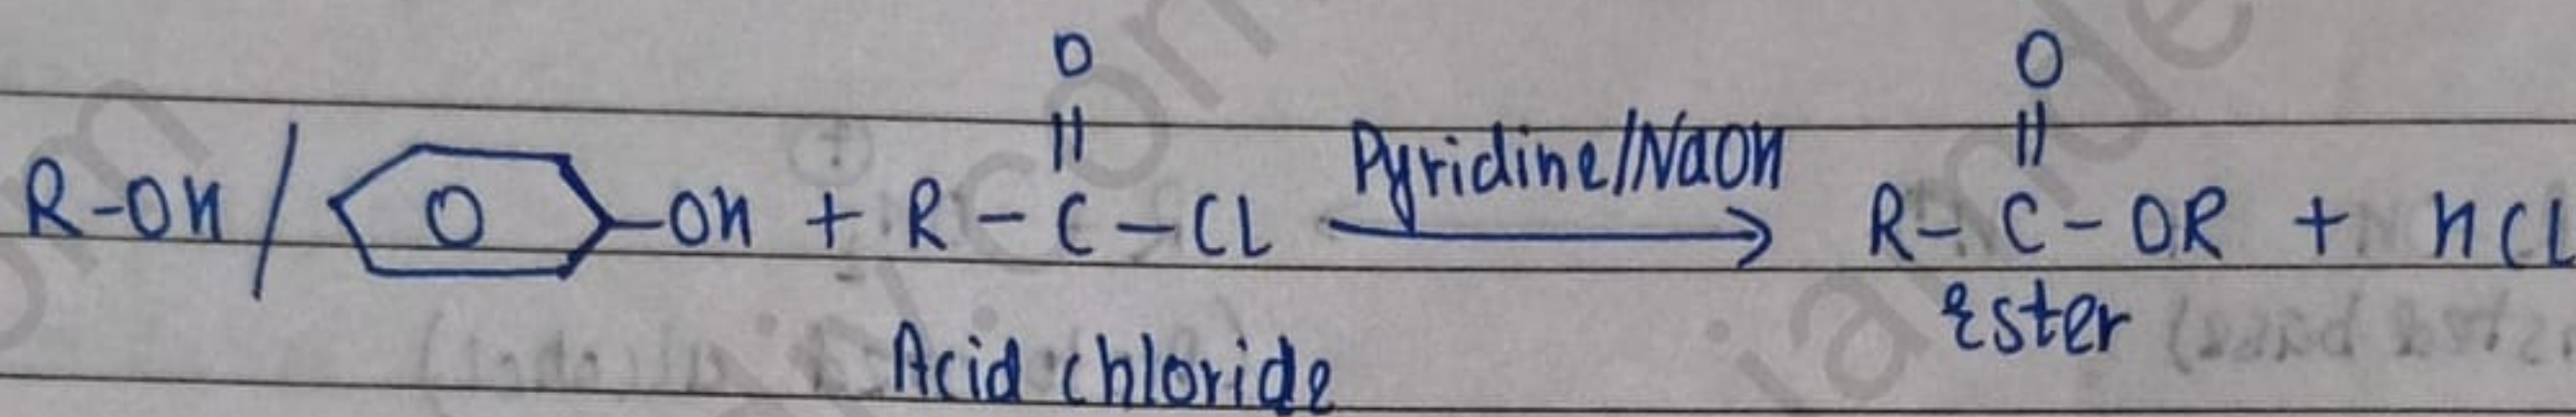 O O
|| ||
R-OH / O -OH + R - C - Cl Pyridine/NaOH → R - C - OR + HCl
Acid chloride Ester